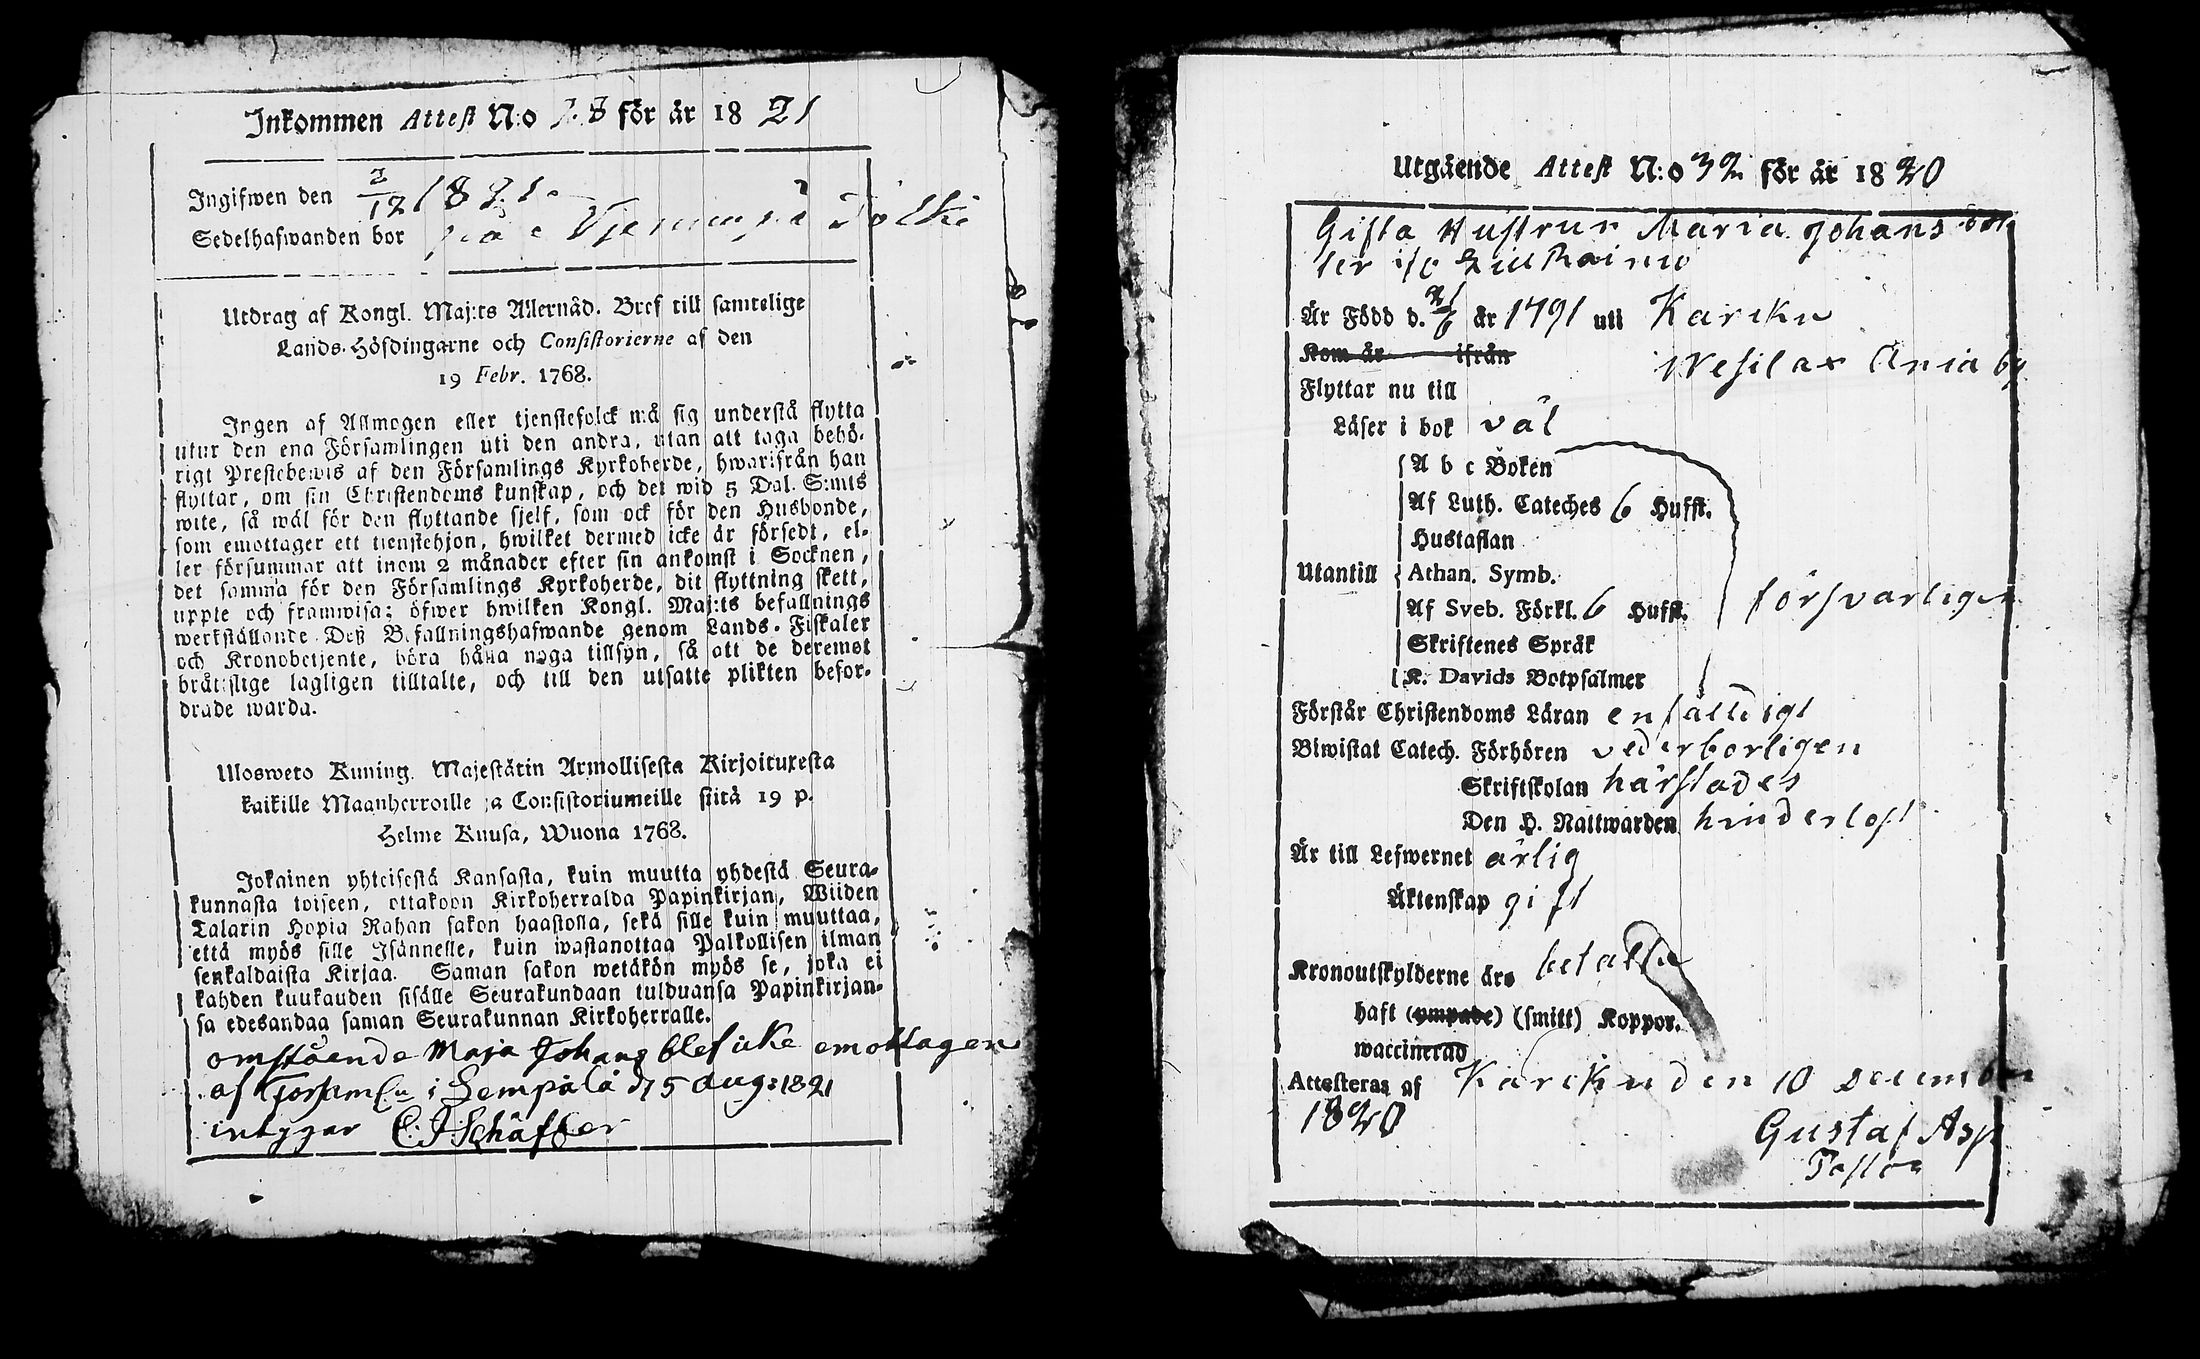 Inkommen Attest N:o 28 för år 1821
Ingifwen den 2/12 1821.
Sedelhafwanden bor på
Utdrag af Kongl. Maj:ts Allernåd. Bref till samtelige
Lands-Höfdingarne och Consistorierne af den
19 Febr. 1768.
Ingen af Allmogen eller tjenstefolck må sig understå flytta
utur den ena Församlingen uti den andra, utan att taga behö-
rigt Prestebewis af den Församlings Kyrkoherde, hwarifrån han
flyttar, om sin Christendoms kunskap, och det wid 5 Dal. S:mts
wite, så wäl för den flyttande sjelf, som ock för den Husbonde,
som emottager ett tienstehjon, hwilket dermed icke är försedt, el-
ler försummar att inom 2 månader efter sin ankomst i Socknen,
det samma för den Församlings Kyrkoherde, dit flyttning skett,
uppte och framwisa; öfwer hwilken Kongl. Maj:ts befallnings
werkställande Deß Befallningshafwande genom Lands-Fiskaler
och Kronobetjente, böra hålla noga tillsyn, så att de deremot
bråtslige lagligen tilltalte, och till den utsatte plikten befor-
drade warda.
Ulosweto Kuning. Majestätin Armollisesta Kirjoituxesta
kaikille Maanherroille ja Consistoriumeille siitä 19 p.
Helme Kuusa, Wuona 1768.
Jokainen yhteisestä Kansasta, kuin muutta yhdestä Seura-
kunnasta toiseen, ottakoon Kirkoherralda Papinkirjan, Wiiden
Talarin Hopia Rahan sakon haastolla, sekä sille kuin muuttaa,
että myös sille Isännelle, kuin wastanottaa Palkollisen ilman
senkaldaista Kirjaa. Saman sakon wetäkön myös se, joka ei
kahden kuukauden sisälle Seurakundaan tulduansa Papinkirjan-
sa edesandaa saman Seurakunnan Kirkoherralle.
omstående Maja Johans blef icke emottagen
af Forsaml:n i Lempälä d 5 aug: 1821
intygar C. J Schäffer
Utgående Attest N:o 32 för år 1820
Gifta Hustrun Maria Johans dot
ter
Är Född d. 21/6 år 1791 uti Karcku
Kom år ifrån Wesilax Ania by
Flyttar nu till
Läser i bok väl
A b c Boken
Af Luth. Cateches 6 Hufst.
Hustaflan
Utantill Athan. Symb.
Af Sveb. Förkl. 6 Hufst. försvarligen
Skriftenes Språk
K. Davids Botpsalmer
Förstår Christendoms Läran enfaldigt
Biwistat Catech. Förhören vederborligen
Skriftskolan härstädes
Den H. Nattwarden hinderlost
Är till Lefwernet ärlig
Äktenskap gift
Kronoutskylderne äro betalta
haft (ympade) (smitt) Koppor.
waccinerad
Attesteras af Karcku den 10 December
1820
Gustaf Asp
Pastor